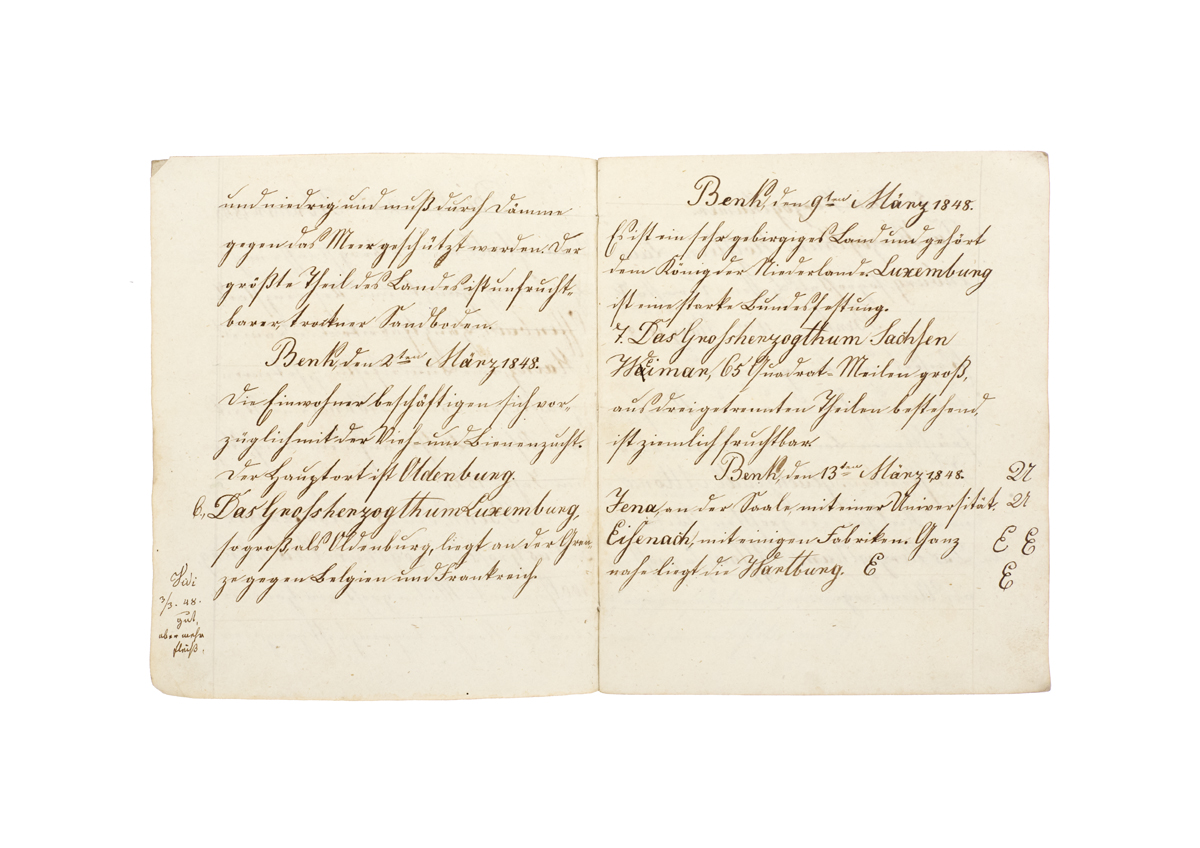 und niedrig und muß durch Dämme
gegen das Meer geschützt werden. Der
größte Theil des Landes ist unfrucht-
barer, trockner Sandboden.
Benk, den 2ten März 1848.
Die Einwohner beschäftigen sich vor-
züglich mit der Vieh- und Bienenzucht.
Der Hauptort ist Oldenburg.
6, Das Grossherzogthum Luxemburg,
so groß, als Oldenburg, liegt an der Gren-
ze gegen Belgien und Frankreich.
3/3. 48.
gut,
aber mehr
Fleiß.
Benk, den 9ten März 1848.
Es ist ein sehr gebirgiges Land und gehört
dem König der Niederlande. Luxemburg
ist eine starke Bundesfestung.
7. Das Grossherzogthum Sachsen
Weimar, 65 Quadrat-Meilen groß,
aus drei getrennten Theilen bestehend,
ist ziemlich fruchtbar.
Benk, den 13ten März 1848.
Jena, an der Saale, mit einer Universität.
Eisenach, mit einigen Fabriken. Ganz
nahe liegt die Wartburg. E
E E
E